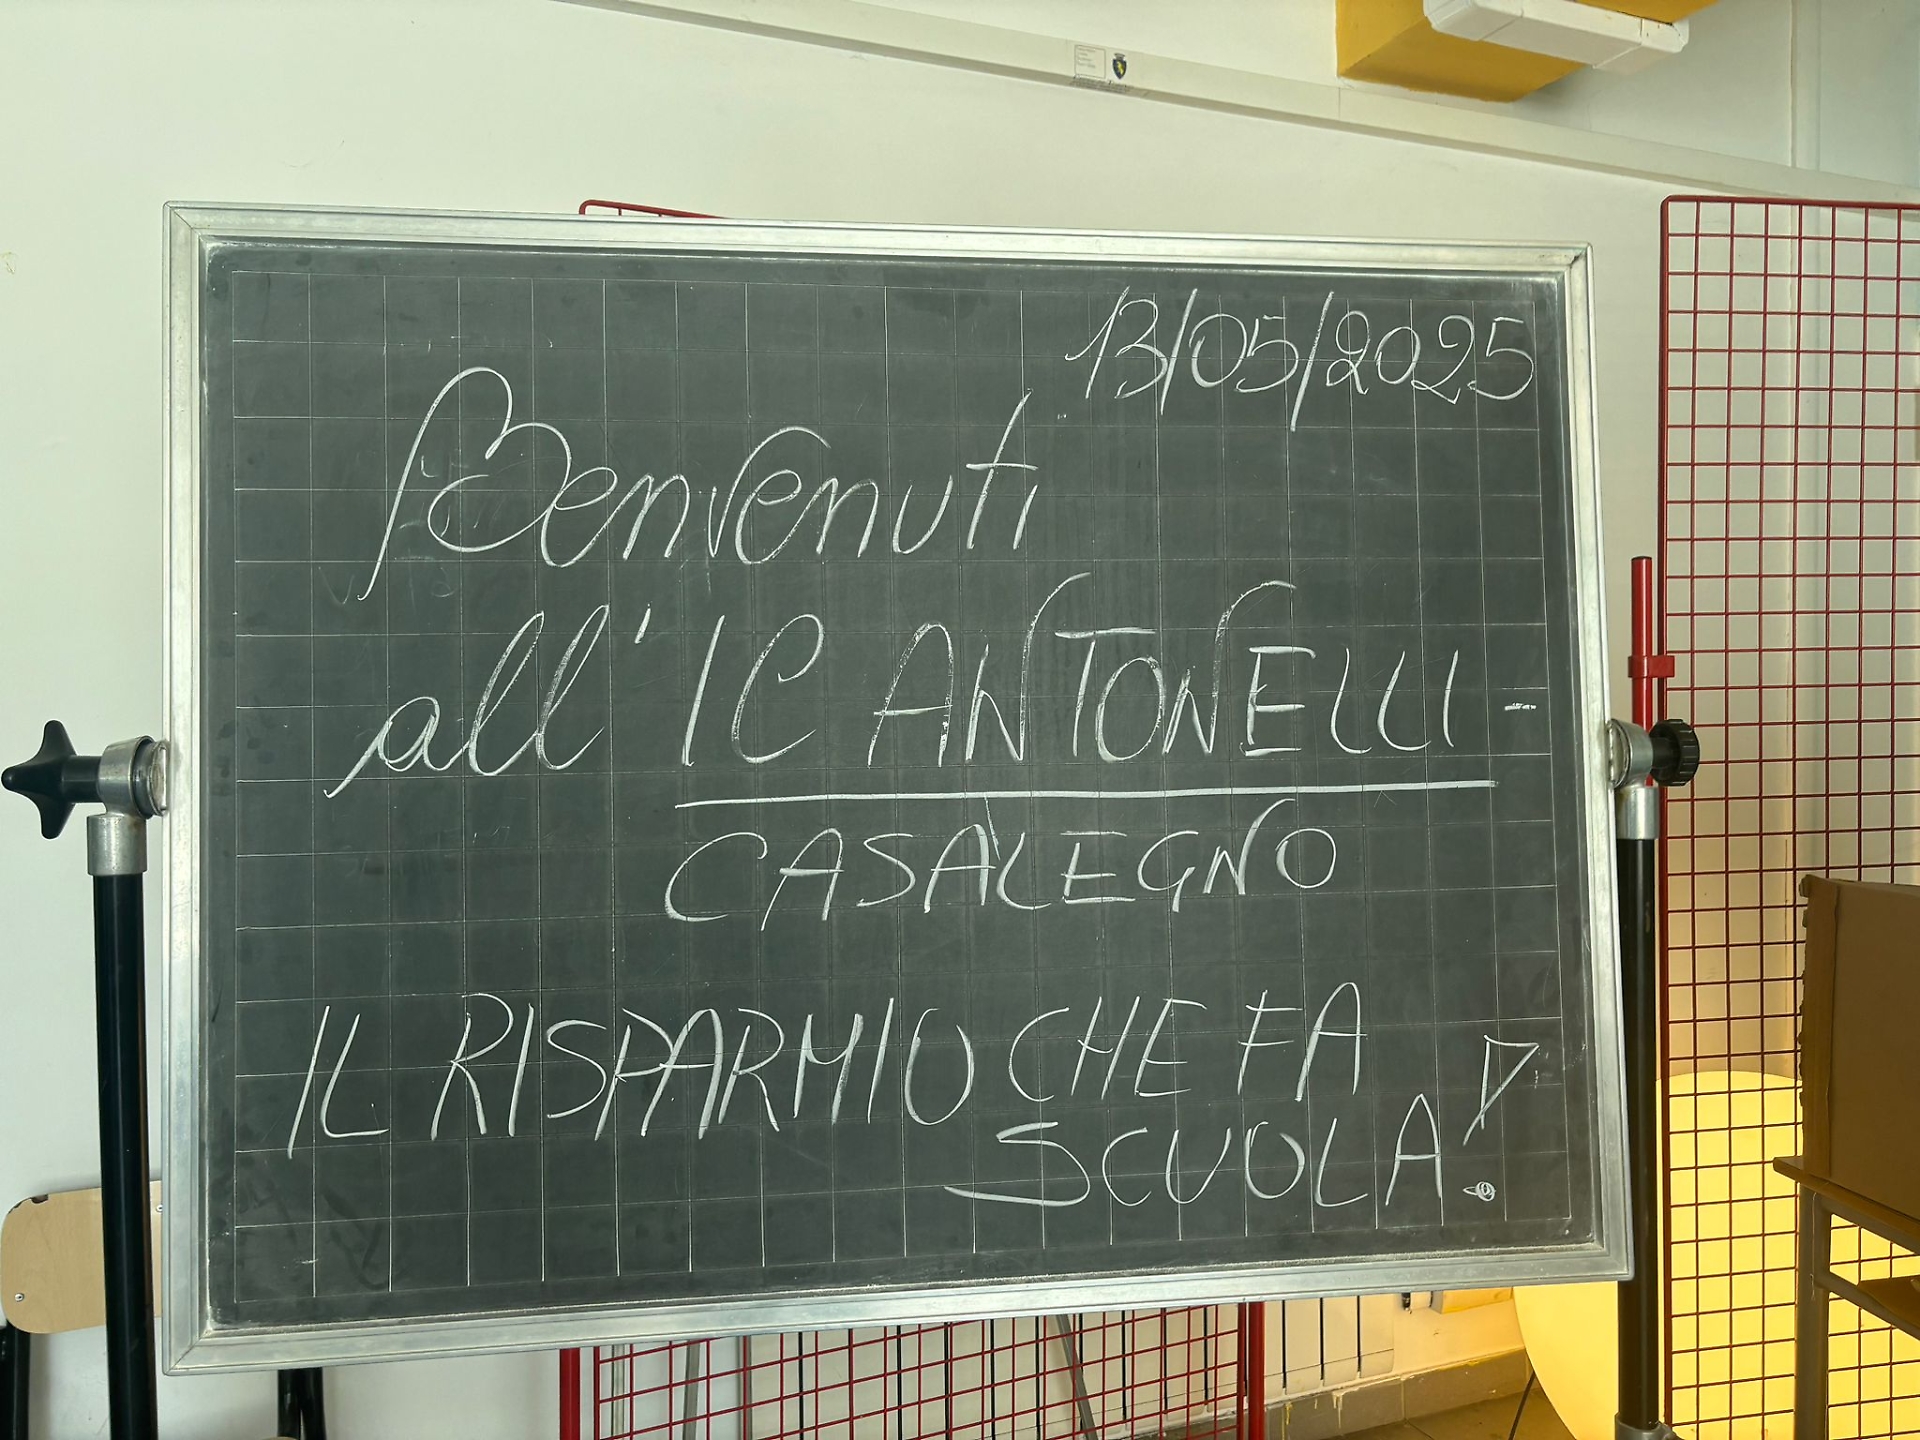 13/05/2025
Benvenuti
all'IC ANTONELLI -
CASALEGNO
IL RISPARMIO CHE FA
SCUOLA!